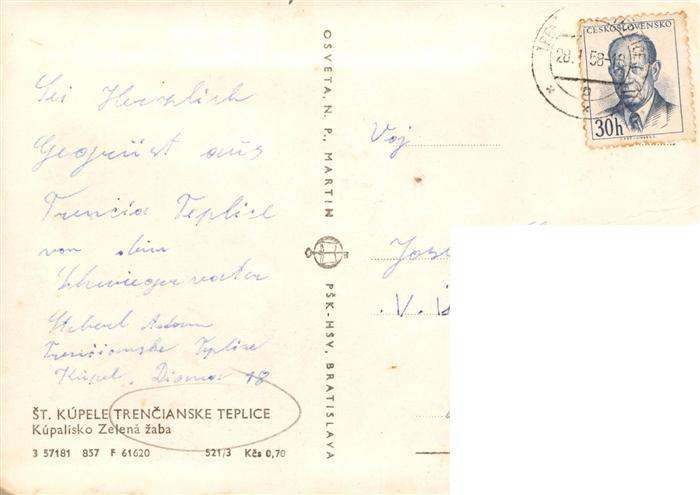 Sei Herzlich
Gegrüst aus
Trenčia Teplice
von dein
Schwiegervater
Adam
Trenčianske Teplice
Kúpel. 18
ŠT. KÚPELE TRENČIANSKE TEPLICE
Kúpalisko Zelená žaba
3 57181 857 F 61620 521/3 Kčs 0,70
OSVETA, N. P., MARTIN
PŠK-HSV, BRATISLAVA
ČESKOSLOVENSKO
30h
58-18
Voj
V.